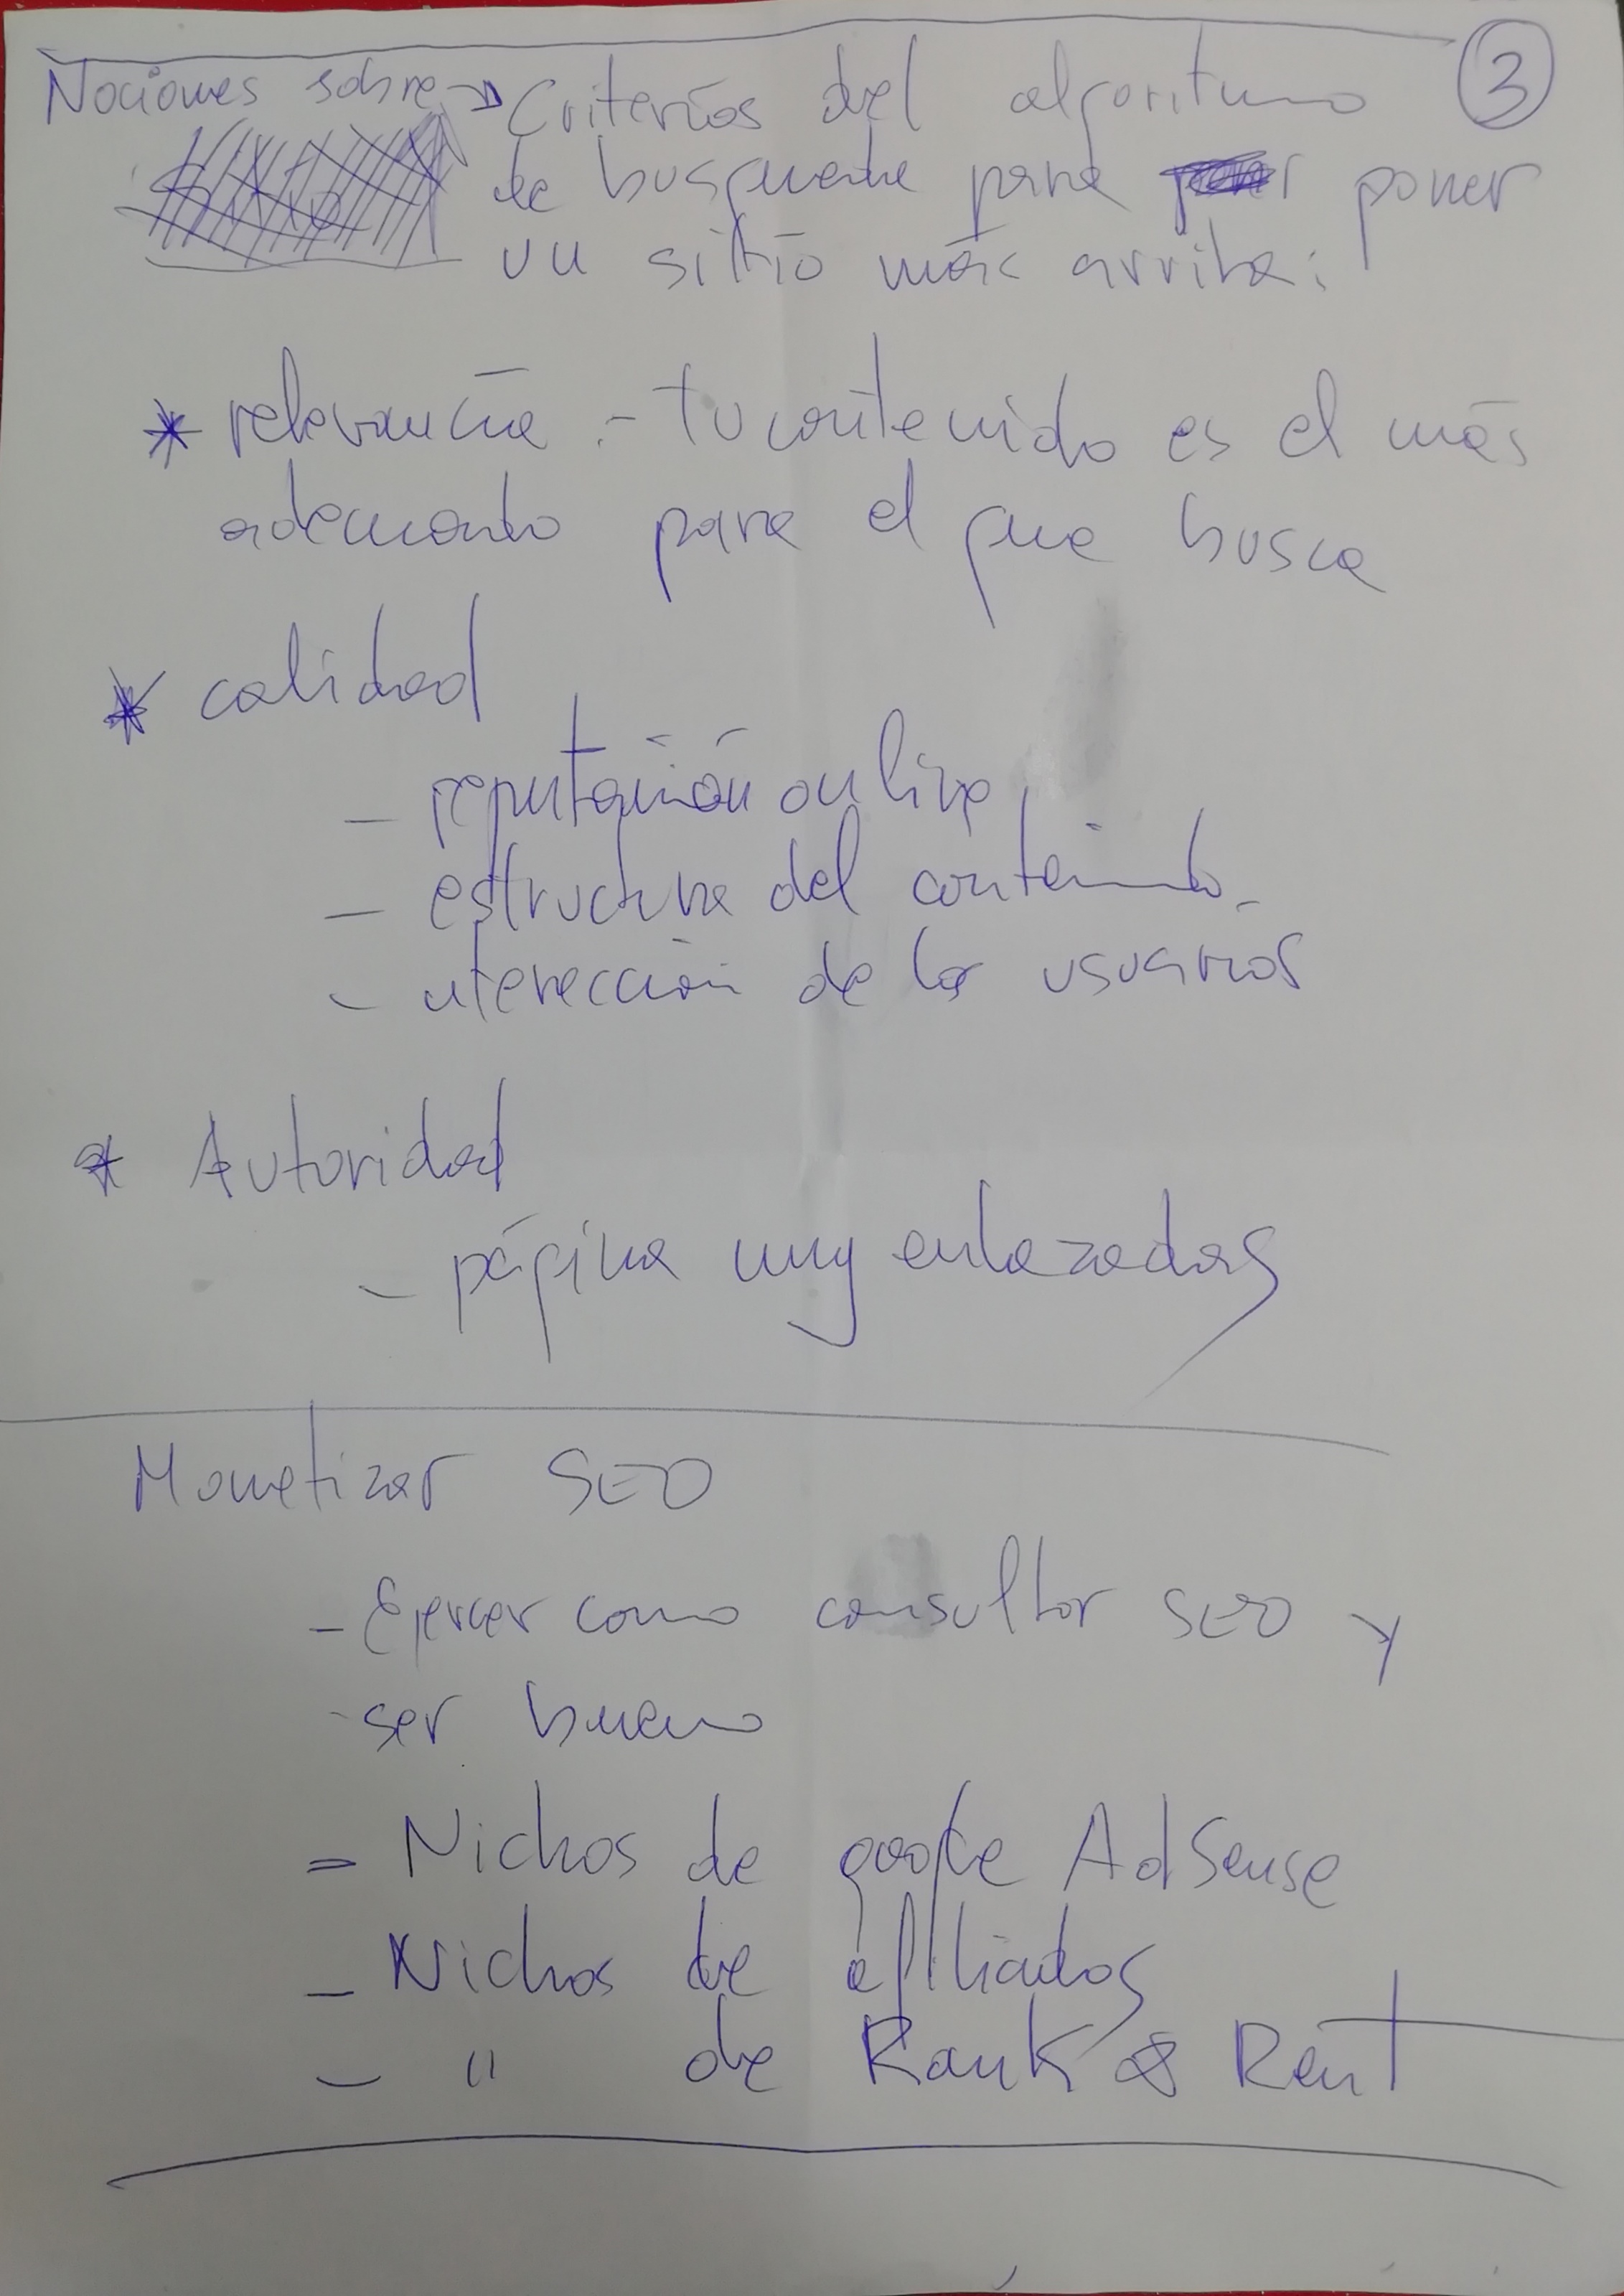 3
Nociones sobre → Criterios del algoritmo
de busqueda para poner
un sitio más arriba:
* relevancia :- tu contenido es el más
adecuado para el que busca
* calidad
- reputación online
- estructura del contenido
- interección de los usuarios
* Autoridad
- página muy enlazadas
Monetizar SEO
- Ejercer como consultor SEO y
- ser bueno
- Nichos de google AdSense
- Nichos de afiliados
- " de Rank & Rent